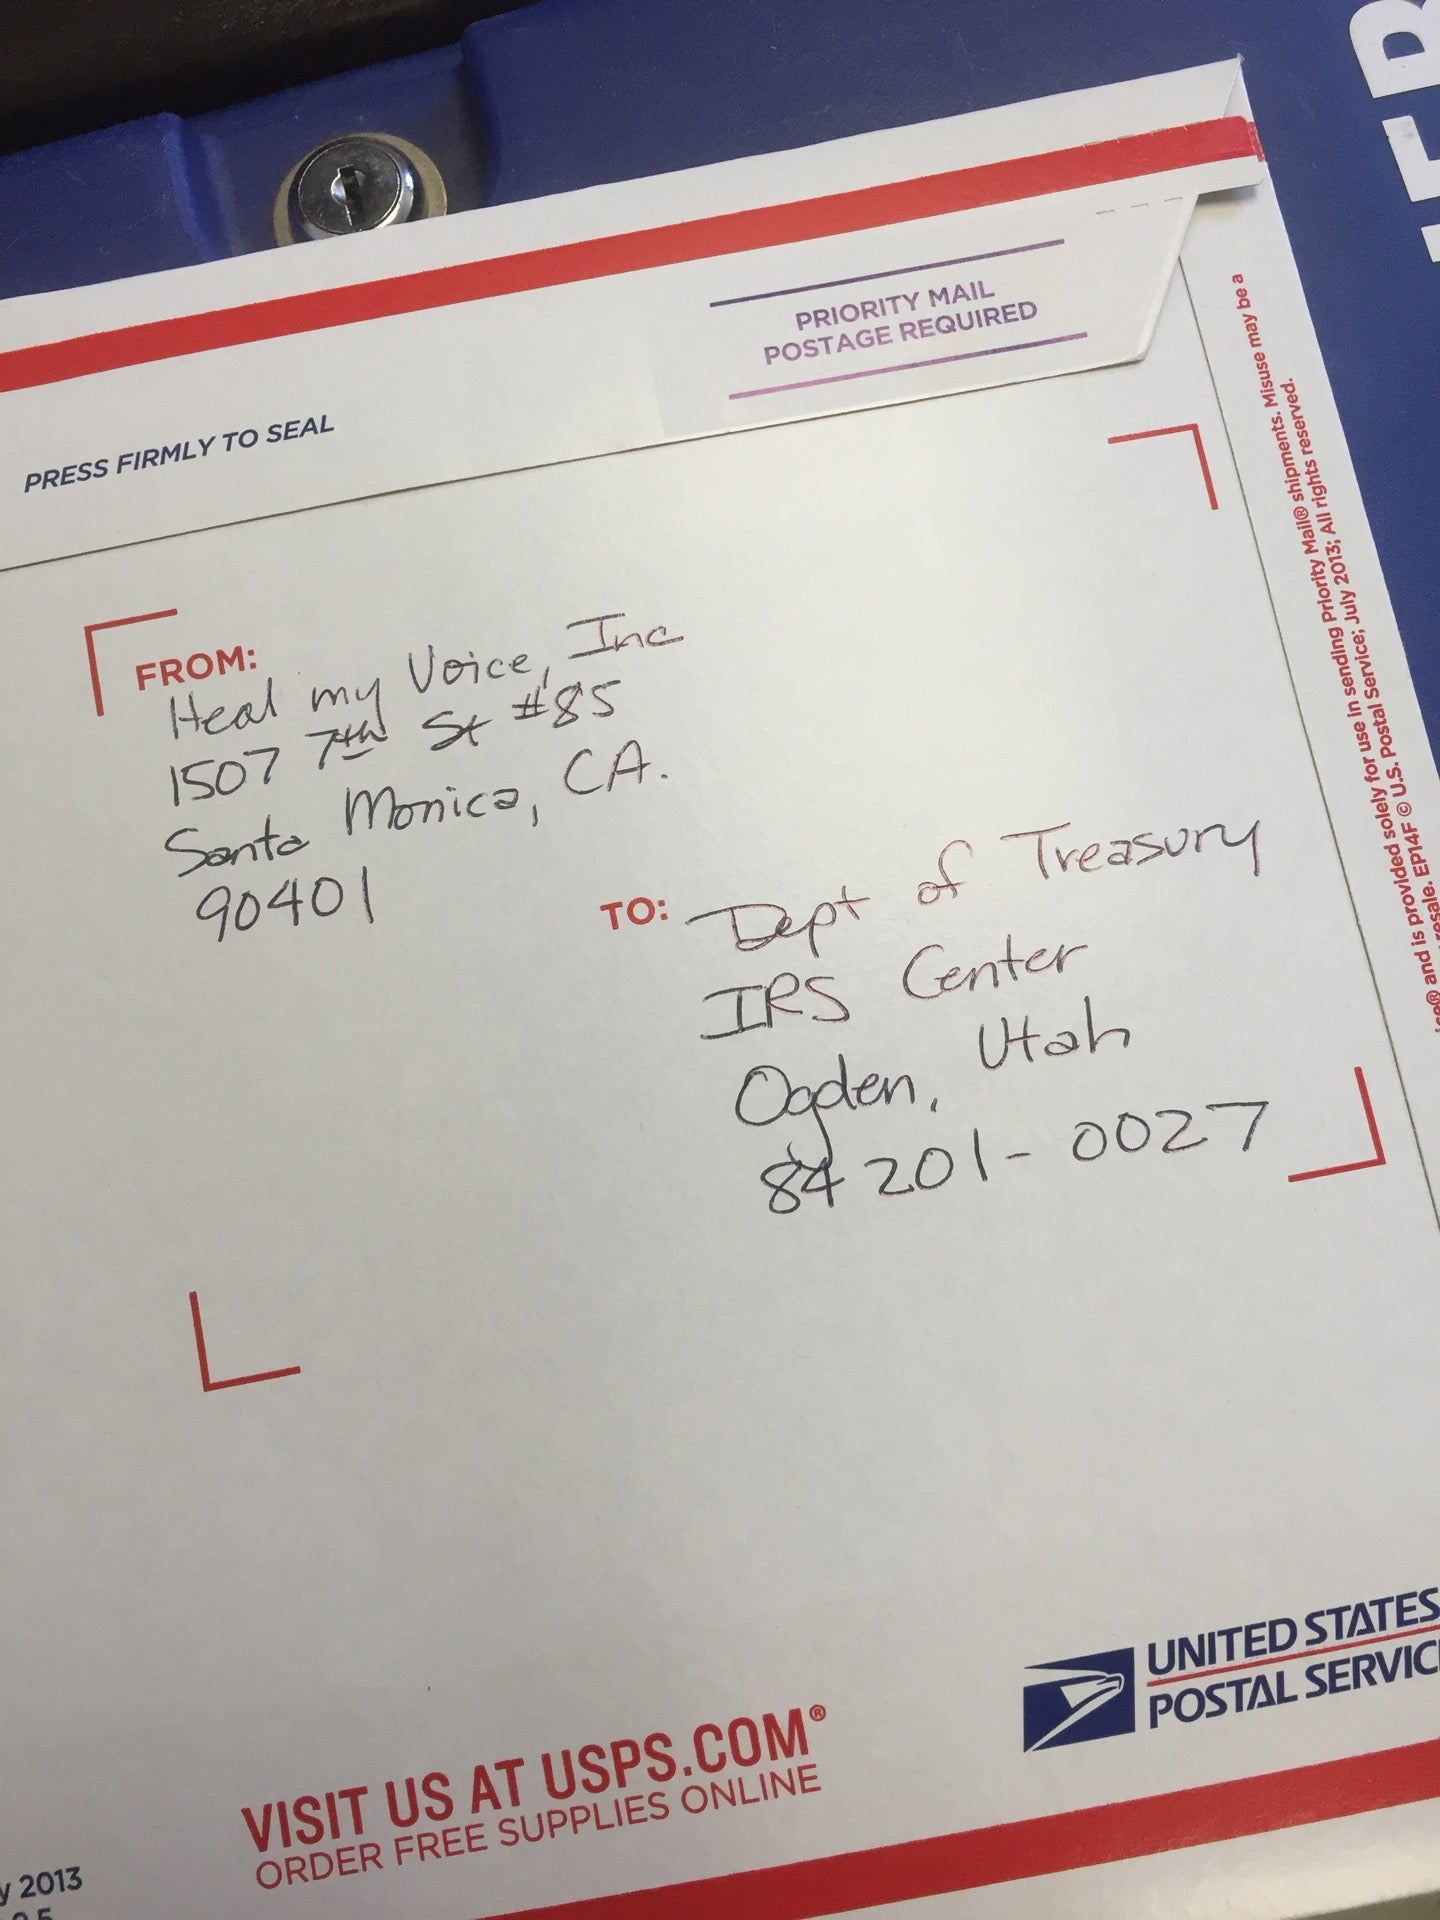 PRIORITY MAIL
POSTAGE REQUIRED
PRESS FIRMLY TO SEAL
FROM:
Heal my Voice, Inc
1507 7th St #85
Santa Monica, CA.
90401
TO:
Dept of Treasury
IRS Center
Ogden, Utah
84201-0027
and is provided solely for use in sending Priority Mail® shipments. Misuse may be a
resale. EP14F © U.S. Postal Service; July 2013; All rights reserved.
UNITED STATES
POSTAL SERVIC
VISIT US AT USPS.COM®
ORDER FREE SUPPLIES ONLINE
y 2013